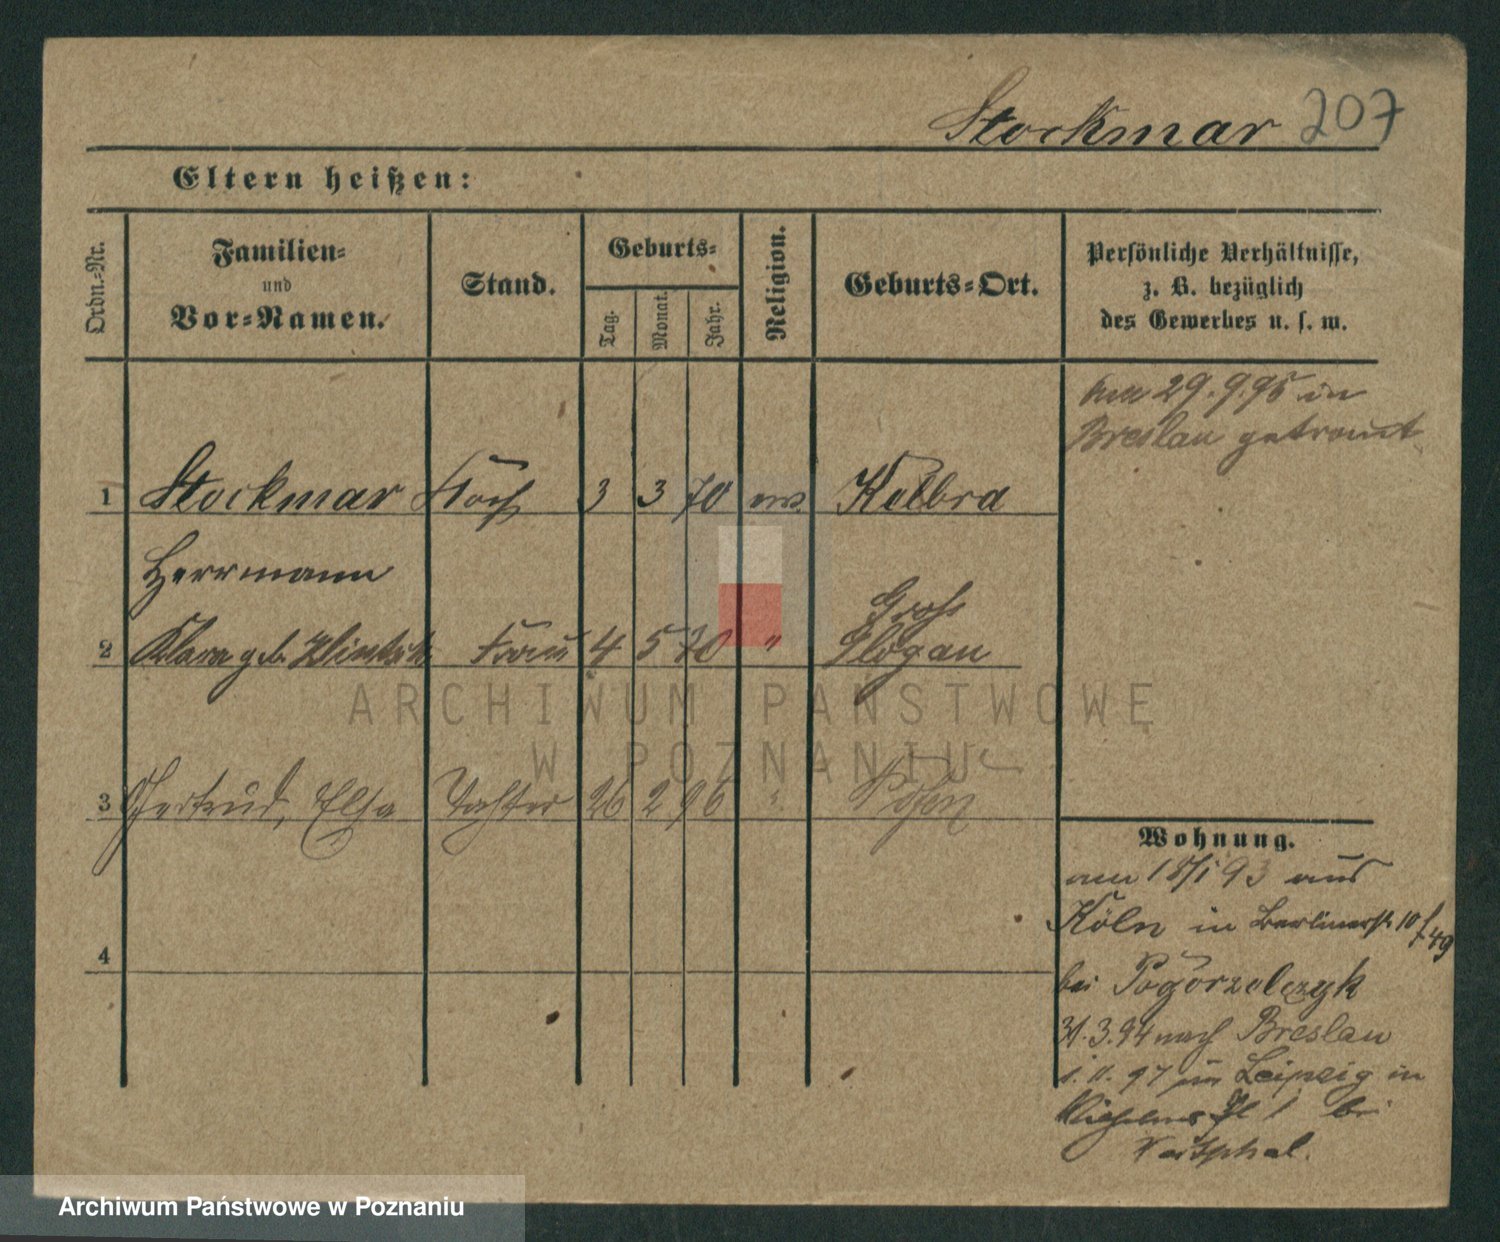 Stockmar 207
Eltern heißen:
Ordn.-Nr.
Familien-
und
Vor-Namen.
Stand.
Geburts-
Tag.
Monat.
Jahr.
Religion.
Geburts-Ort.
Persönliche Verhältnisse,
z. B. bezüglich
des Gewerbes u. s. w.
am 29.9.95 in
Breslau getraut
1 Stockmar Koch 3 3 70 ev. Kelbra
Herrmann
Gross
2 Klara geb. Frau 4 5 70 " Glogau
ARCHIWUM PAŃSTWOWE
W POZNANIU
3 Gertrud, Elsa Tochter 26 2 96 " Posen
Wohnung.
am 18/1 93 aus
Köln in Berlinerstr. 10
49
4
bei Pogorzelczyk
31.3.94 nach Breslau
97 Leipzig in
Wilhelms Pl 1 bei
Westphal.
Archiwum Państwowe w Poznaniu